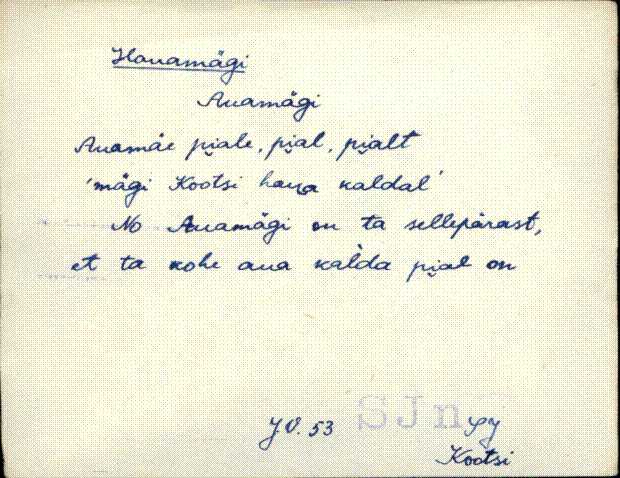 Hauamägi
Auamägi
Auamäe pi̮ale, pi̮al, pi̮alt
'mägi Kootsi haua kaldal'
No Auamägi on ta sellepärast,
et ta kohe aua kal̀da pi̮al on
J.V. 53 SJn
Kootsi